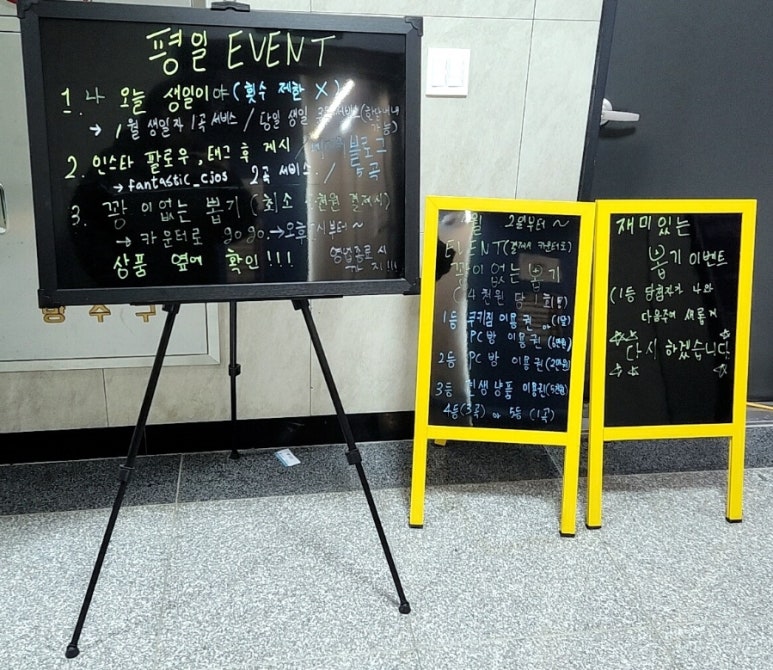 평일 EVENT
1. 나 오늘 생일이야 (횟수 제한 X)
→ 1월 생일자 1곡 서비스 / 당일 생일 서비스
가능)
2. 인스타 팔로우, 태그 후 제시 / 블로그
→ fantastic_cjos 2곡 서비스. / 5곡
3. 꽝 이 없는 뽑기 (최소 천원 결제시)
→ 카운터로 gogo. → 오후 시부터~
상품 옆에 확인!!! 영업종료 시
까지!!!
방수구
월 2월부터 ~
EVENT (결제시 카운터로)
꽝이 없는 뽑기
(4천원 당 1회)
1등 쿠키짐 이용권 (1달)
PC방 이용권
2등 PC방 이용권 (2만원)
3등 인생냥품 이용권 (5천원)
4등 (3곡) 5등 (1곡)
재미있는
뽑기 이벤트
(1등 당첨자가 나와
다음주에 새롭게
다시 하겠습니다